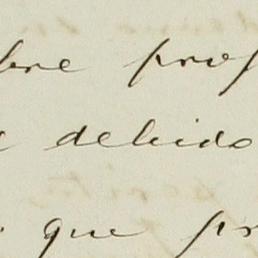 bre prof
debido
que pr